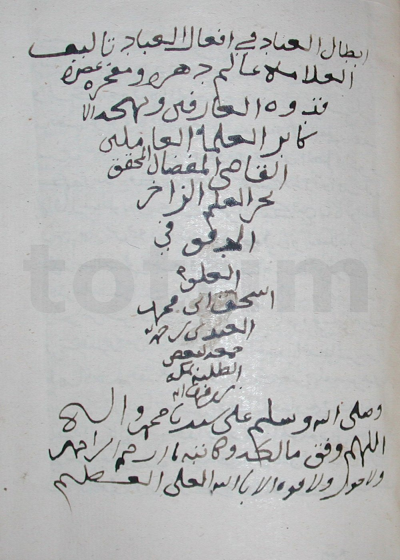 ابطال العناد في افعال العباد تاليف
العلامة عالم دهره ومفخرة عصره
قدوة العارفين ونهجه الا
كابر العلماء العاملين
القاضي المفضال المحقق
بحر العلم الزاخر
المدقق في
العلوم
اسحق ابن محمد
العبدي رحمه
الطلبة بمكة
وصلى الله وسلم على سيدنا محمد واله
اللهم وفق مالكه وكاتبه يا ارحم الراحمين
ولا حول ولا قوة الا بالله العلي العظيم
totfim